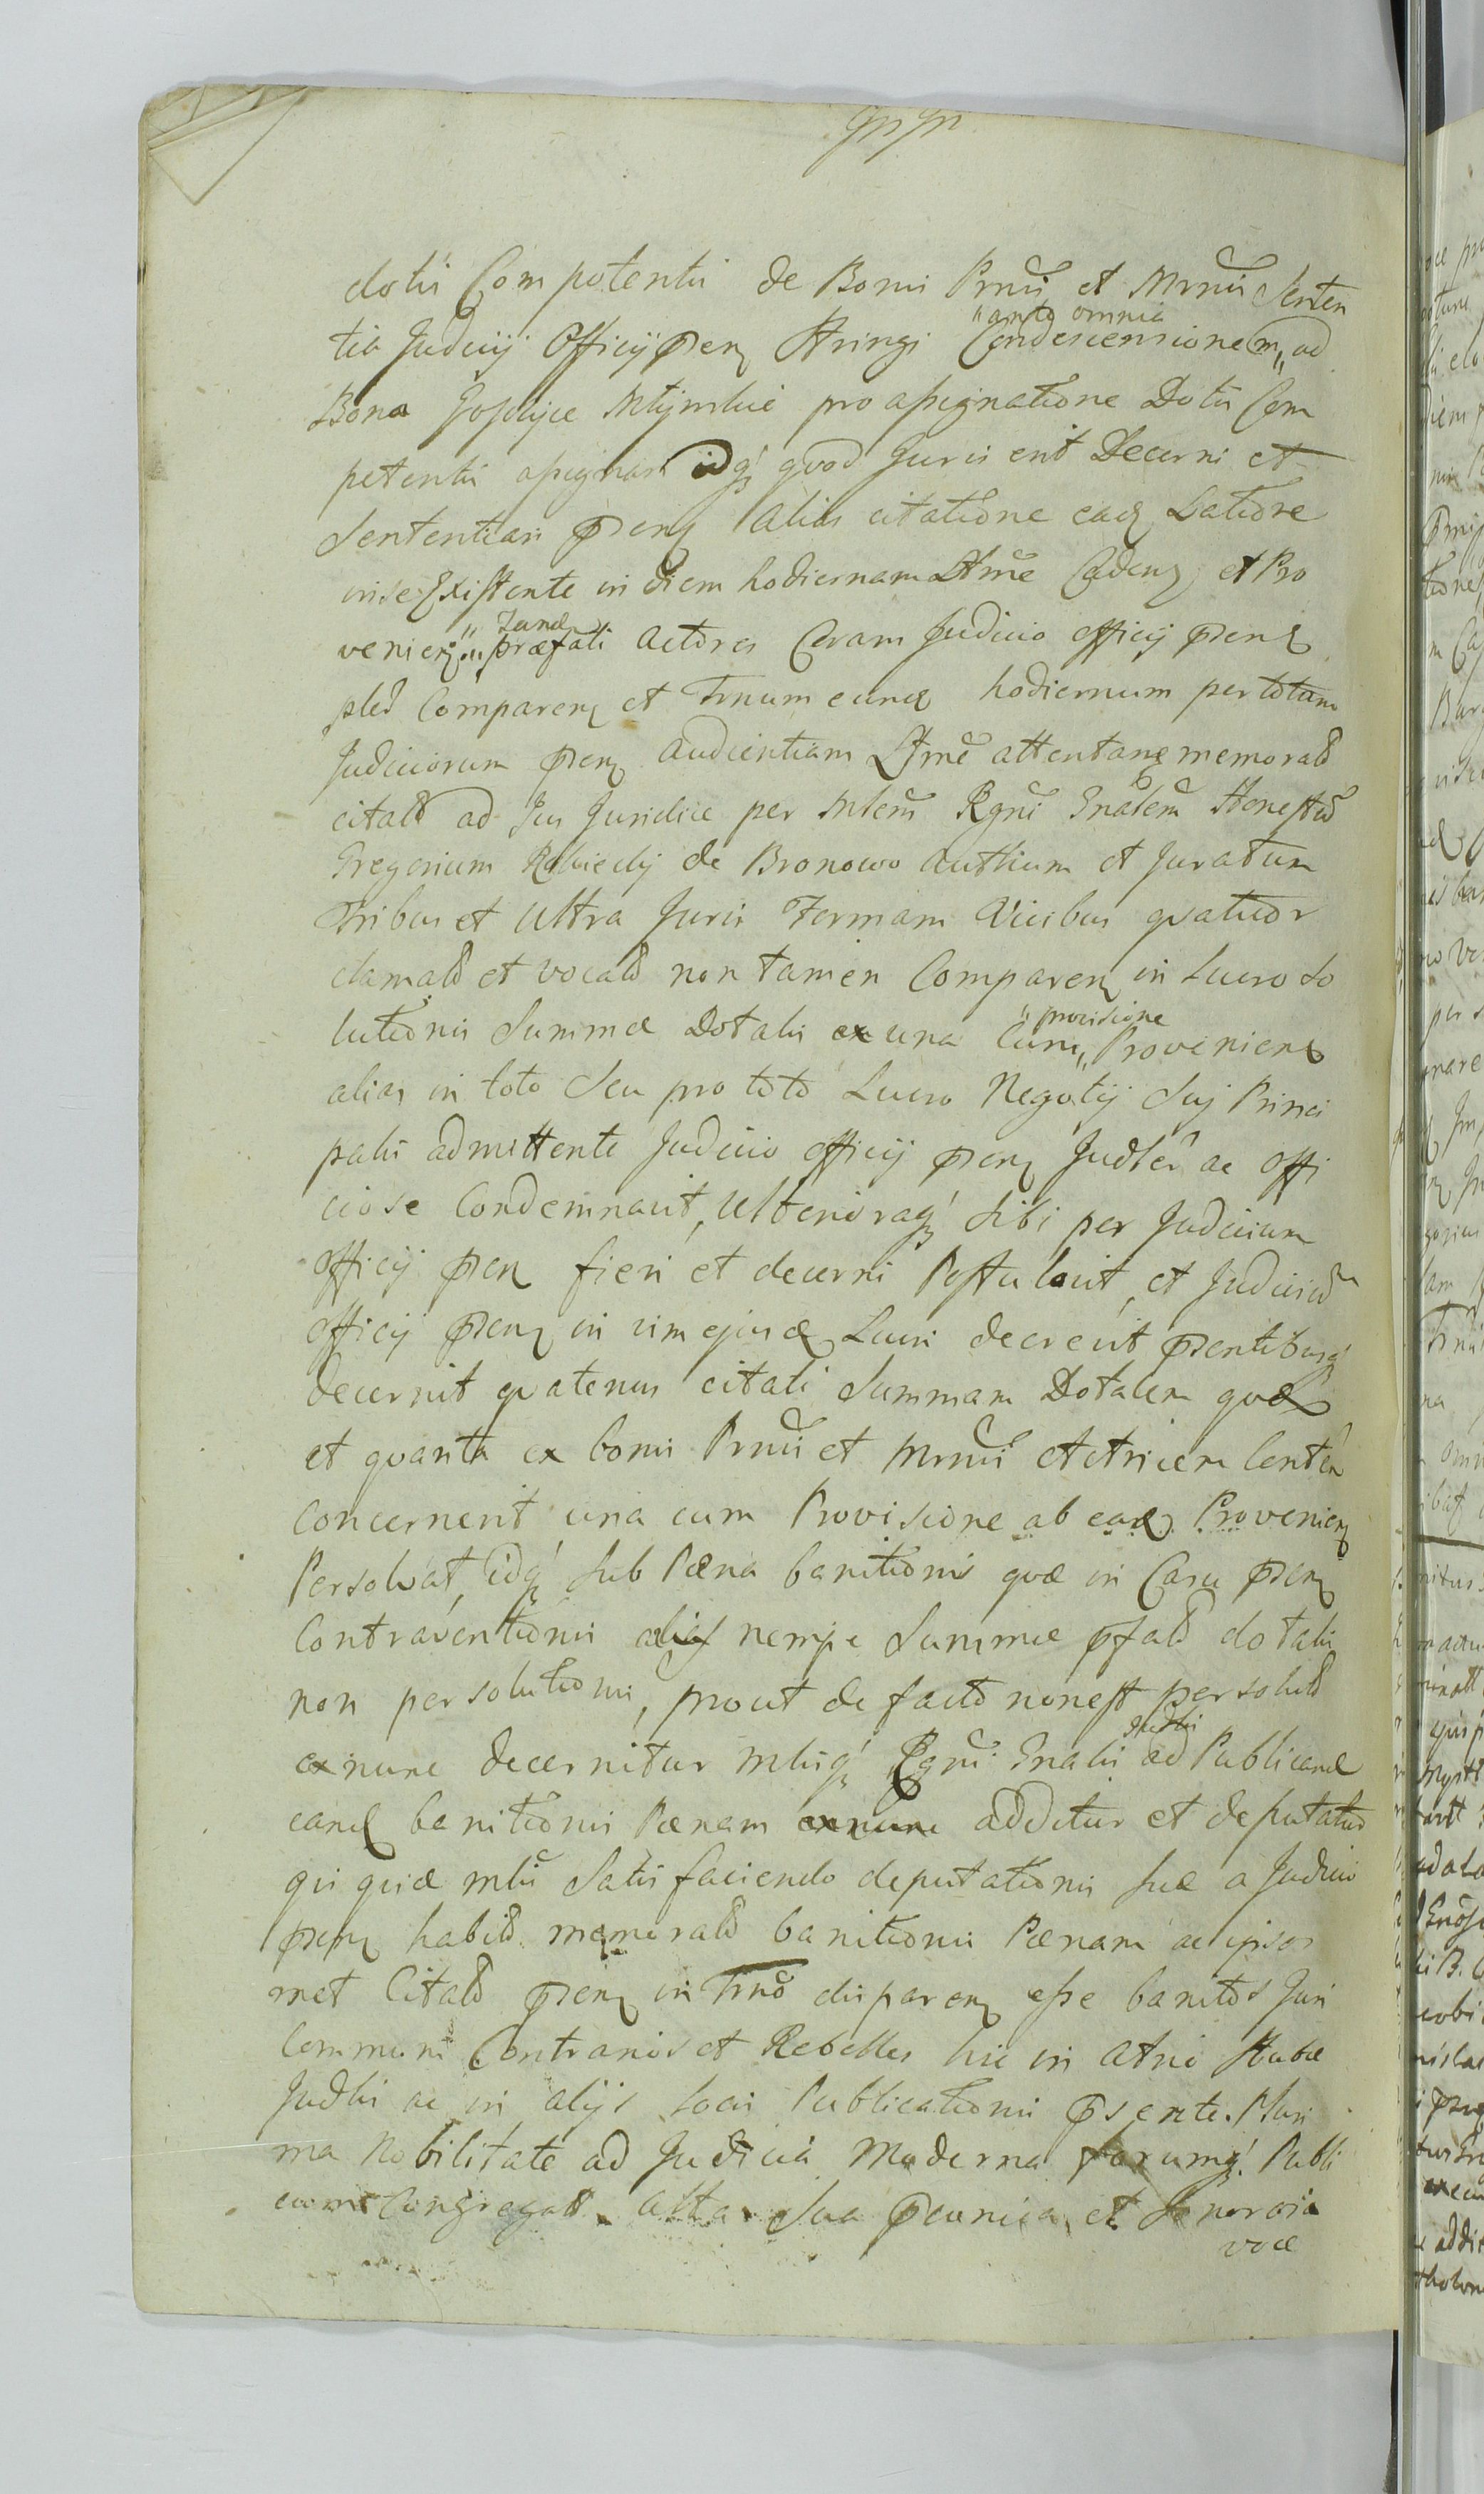 dotis Competentis de Bonis Prnis et Mrnis Senten
tia Judicij Officij pren Stringi Condescensionem ad
"ante omnia
Bona pro assignatione Dotis Com
petentis assignari idq quod Juris erit Decerni et
Sententiari pren alias citatione ead Latiore
in se Existente in diem hodiernam Ltme Caden et Pro
venien præfati Actores Coram Judicio officij pren
ibid Comparen et Trnum eund hodiernum per totam
Judiciorum pren Audientiam Ltme attentan memorat
citat ad Jus Juridice per Mlem Rgni Gnalem Honestu
Gregorium de Bronowo authum et Juratum
Tribus et Ultra Juris Formam Vicibus quatuor
clamat et vocat non tamen Comparen in Lucro so
lutionis Summæ Dotalis ex una Cum "provisione Provenien
alias in toto Seu pro toto Lucro Negotij Suj Princi
palis admittente Judicio officij pren Judler ac offi
ciose Condemnavit, Ulterioraq sibi per Judicium
officij pren fieri et decerni Postulavit, et Judiciu
officij pren in vim ejusd Lucri decrevit prentibusq
decernit quatenus citati Summam Dotalem quæ
et quanta ex bonis Prnis et Mrnis Actricem
Concernerit una cum Provisione ab ead Provenien
Persolvat, idq sub Pæna banitionis quæ in Casu pren
Contraventionis alias nempe Summæ pfat dotalis
non persolutionis, prout de facto non est persolut
ex nunc decernitur Mlisq Rgni Gnalis Judlis ad Publicand
eand banitionis Pænam ex nunc additur et deputatur
qui quid Mlis Satisfaciendo deputationis suæ a Judicio
pren habit memorat banitionis Pænam ac ipsos
met Citat pren in Trno disparen esse banitos Juri
Communi Contrarios et Rebelles hic in Atrio Stubæ
Judlis ac in alijs Locis Publicationis psente Pluri
ma Nobilitate ad Judicia Moderna forumq Publi
cum Congregat Alta Sua et Sonorosa
voce